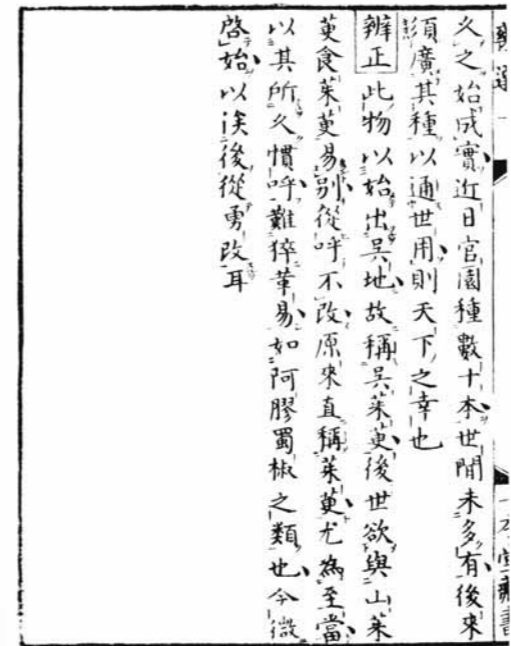 久之始成實近日官園種數十本世間未多有後來
須廣其種以通世用則天下之幸也
辨正此物以始出吳地故稱吳茱萸後世欲與山茱
萸食茱萸易別從呼不改原來直稱茱萸尤為至當
以其所久慣呼難猝革易如阿膠蜀椒之類也今微
啓始以俟後從勇改耳